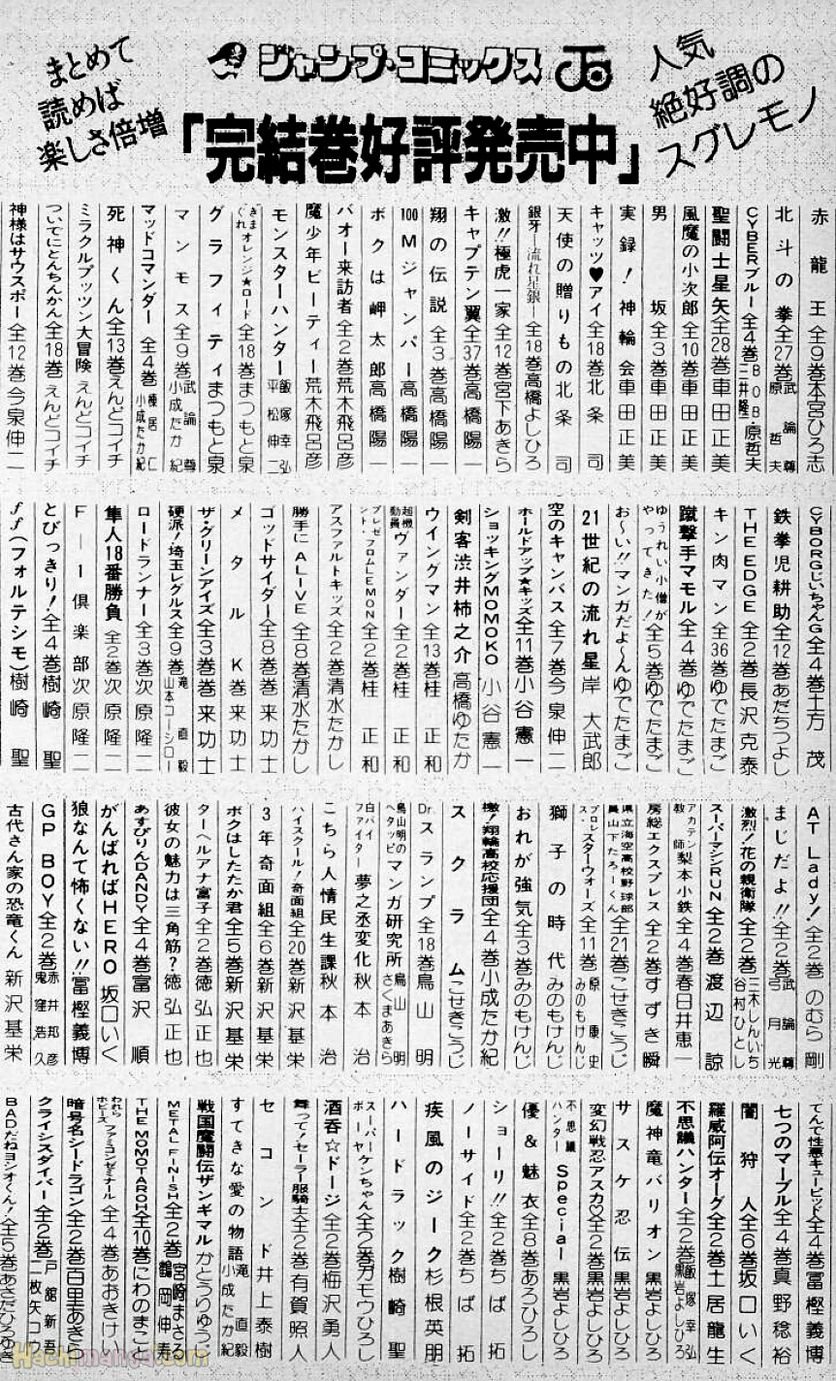 まとめて
読めば
楽しさ倍増
ジャンプ・コミックス
人気
絶好調の
スグレモノ
「完結巻好評発売中」
赤龍王 全9巻 本宮ひろ志
北斗の拳 全27巻 武論尊 原哲夫
CYBERブルー 全4巻 BOB・原哲夫 三井隆一
聖闘士星矢 全28巻 車田正美
風魔の小次郎 全10巻 車田正美
男坂 全3巻 車田正美
実録!神輪会 車田正美
キャッツ♥アイ 全18巻 北条司
天使の贈りもの 北条司
銀牙―流れ星銀― 全18巻 高橋よしひろ
激!!極虎一家 全12巻 宮下あきら
キャプテン翼 全37巻 高橋陽一
翔の伝説 全3巻 高橋陽一
100Mジャンパー 高橋陽一
ボクは岬太郎 高橋陽一
バオー来訪者 全2巻 荒木飛呂彦
魔少年ビーティー 荒木飛呂彦
モンスターハンター 飯塚幸弘 平松伸二
きまぐれオレンジ★ロード 全18巻 まつもと泉
グラフィティ まつもと泉
マンモス 全9巻 武論尊 小成たか紀
マッドコマンダー 全4巻 榛居仁 小成たか紀
死神くん 全13巻 えんどコイチ
ミラクルプッツン大冒険 えんどコイチ
ついでにとんちんかん 全18巻 えんどコイチ
神様はサウスポー 全12巻 今泉伸二
CYBORGじいちゃんG 全4巻 土方茂
鉄拳児耕助 全12巻 あだちつよし
THE EDGE 全2巻 長沢克泰
キン肉マン 全36巻 ゆでたまご
蹴撃手マモル 全4巻 ゆでたまご
ゆうれい小僧がやってきた! 全5巻 ゆでたまご
お〜い!!マンガだよ〜ん ゆでたまご
21世紀の流れ星 岸大武郎
空のキャンバス 全7巻 今泉伸二
ホールドアップ★キッズ 全11巻 小谷憲一
ショッキングMOMOKO 小谷憲一
剣客渋井柿之介 高橋ゆたか
ウイングマン 全13巻 桂正和
超機動員ヴァンダー 全2巻 桂正和
プレゼント・フロムLEMON 全2巻 桂正和
アスファルトキッズ 全2巻 清水たかし
勝手にALIVE 全8巻 清水たかし
ゴッドサイダー 全8巻 巻来功士
メタルK 巻来功士
ザ・グリーンアイズ 全3巻 巻来功士
硬派!埼玉レグルス 全9巻 滝直毅 山本コーシロー
ロードランナー 全3巻 次原隆二
隼人18番勝負 全2巻 次原隆二
F―1倶楽部 次原隆二
とびっきり! 全4巻 樹崎聖
ff(フォルテシモ) 樹崎聖
AT Lady! 全2巻 のむら剛
まじだよ!! 全2巻 武論尊 弓月光
激烈!花の親衛隊 全2巻 三木しんいち 谷村ひとし
スーパーマシンRUN 全2巻 渡辺諒
アカテン教師梨本小鉄 全4巻 春日井恵一
房総エクスプレス 全2巻 すずき瞬
県立海空高校野球部員山下たろーくん 全21巻 こせきこうじ
プロレス・スターウォーズ 全11巻 原康史 みのもけんじ
獅子の時代 みのもけんじ
おれが強気 全3巻 みのもけんじ
撒!翔輪高校応援団 全4巻 小成たか紀
スクラム こせきこうじ
Dr.スランプ 全18巻 鳥山明
鳥山明のヘタッピマンガ研究所 鳥山明 さくまあきら
白バイファイター夢之丞変化 秋本治
こちら人情民生課 秋本治
ハイスクール!奇面組 全20巻 新沢基栄
3年奇面組 全6巻 新沢基栄
ボクはしたたか君 全5巻 新沢基栄
ターヘルアナ富子 全2巻 徳弘正也
彼女の魅力は三角筋? 徳弘正也
あすぴりんDANDY 全4巻 富沢順
がんばればHERO 坂口いく
狼なんて怖くない!! 冨樫義博
GP BOY 全2巻 赤井邦彦 鬼窪浩久
古代さん家の恐竜くん 新沢基栄
てんで性悪キューピッド 全4巻 冨樫義博
七つのマーブル 全4巻 真野稔裕
闇狩人 全6巻 坂口いく
羅威阿伝オーグ 全2巻 土居龍生
不思議ハンター 全2巻 飯塚幸弘 黒岩よしひろ
魔神竜バリオン 黒岩よしひろ
サスケ忍伝 黒岩よしひろ
変幻戦忍アスカ♡ 全2巻 黒岩よしひろ
不思議ハンターSpecial 黒岩よしひろ
優&魅衣 全8巻 あろひろし
ショーリ!! 全2巻 ちば拓
ノーサイド 全2巻 ちば拓
疾風のジーク 杉根英朋
ハードラック 樹崎聖
スーパーボーヤケンちゃん 全2巻 ガモウひろし
酒呑☆ドージ 全2巻 梅沢勇人
舞って!セーラー服騎士 全2巻 有賀照人
セコンド 井上泰樹
すてきな愛の物語 滝直毅 小成たか紀
戦国魔闘伝ザンギマル かとうりゅうう
METAL FINISH 全2巻 宮崎まさる 鶴岡伸寿
THE MOMOTAROH 全10巻 にわのまこと
われらホビーズファミコンゼミナール 全4巻 あおきけい
暗号名シードラゴン 全2巻 百里あきら
クライシスダイバー 全2巻 戸舘新吾 二枚矢コウ
BADだねヨシオくん! 全5巻 あさだひろゆき
Hachimanga.com